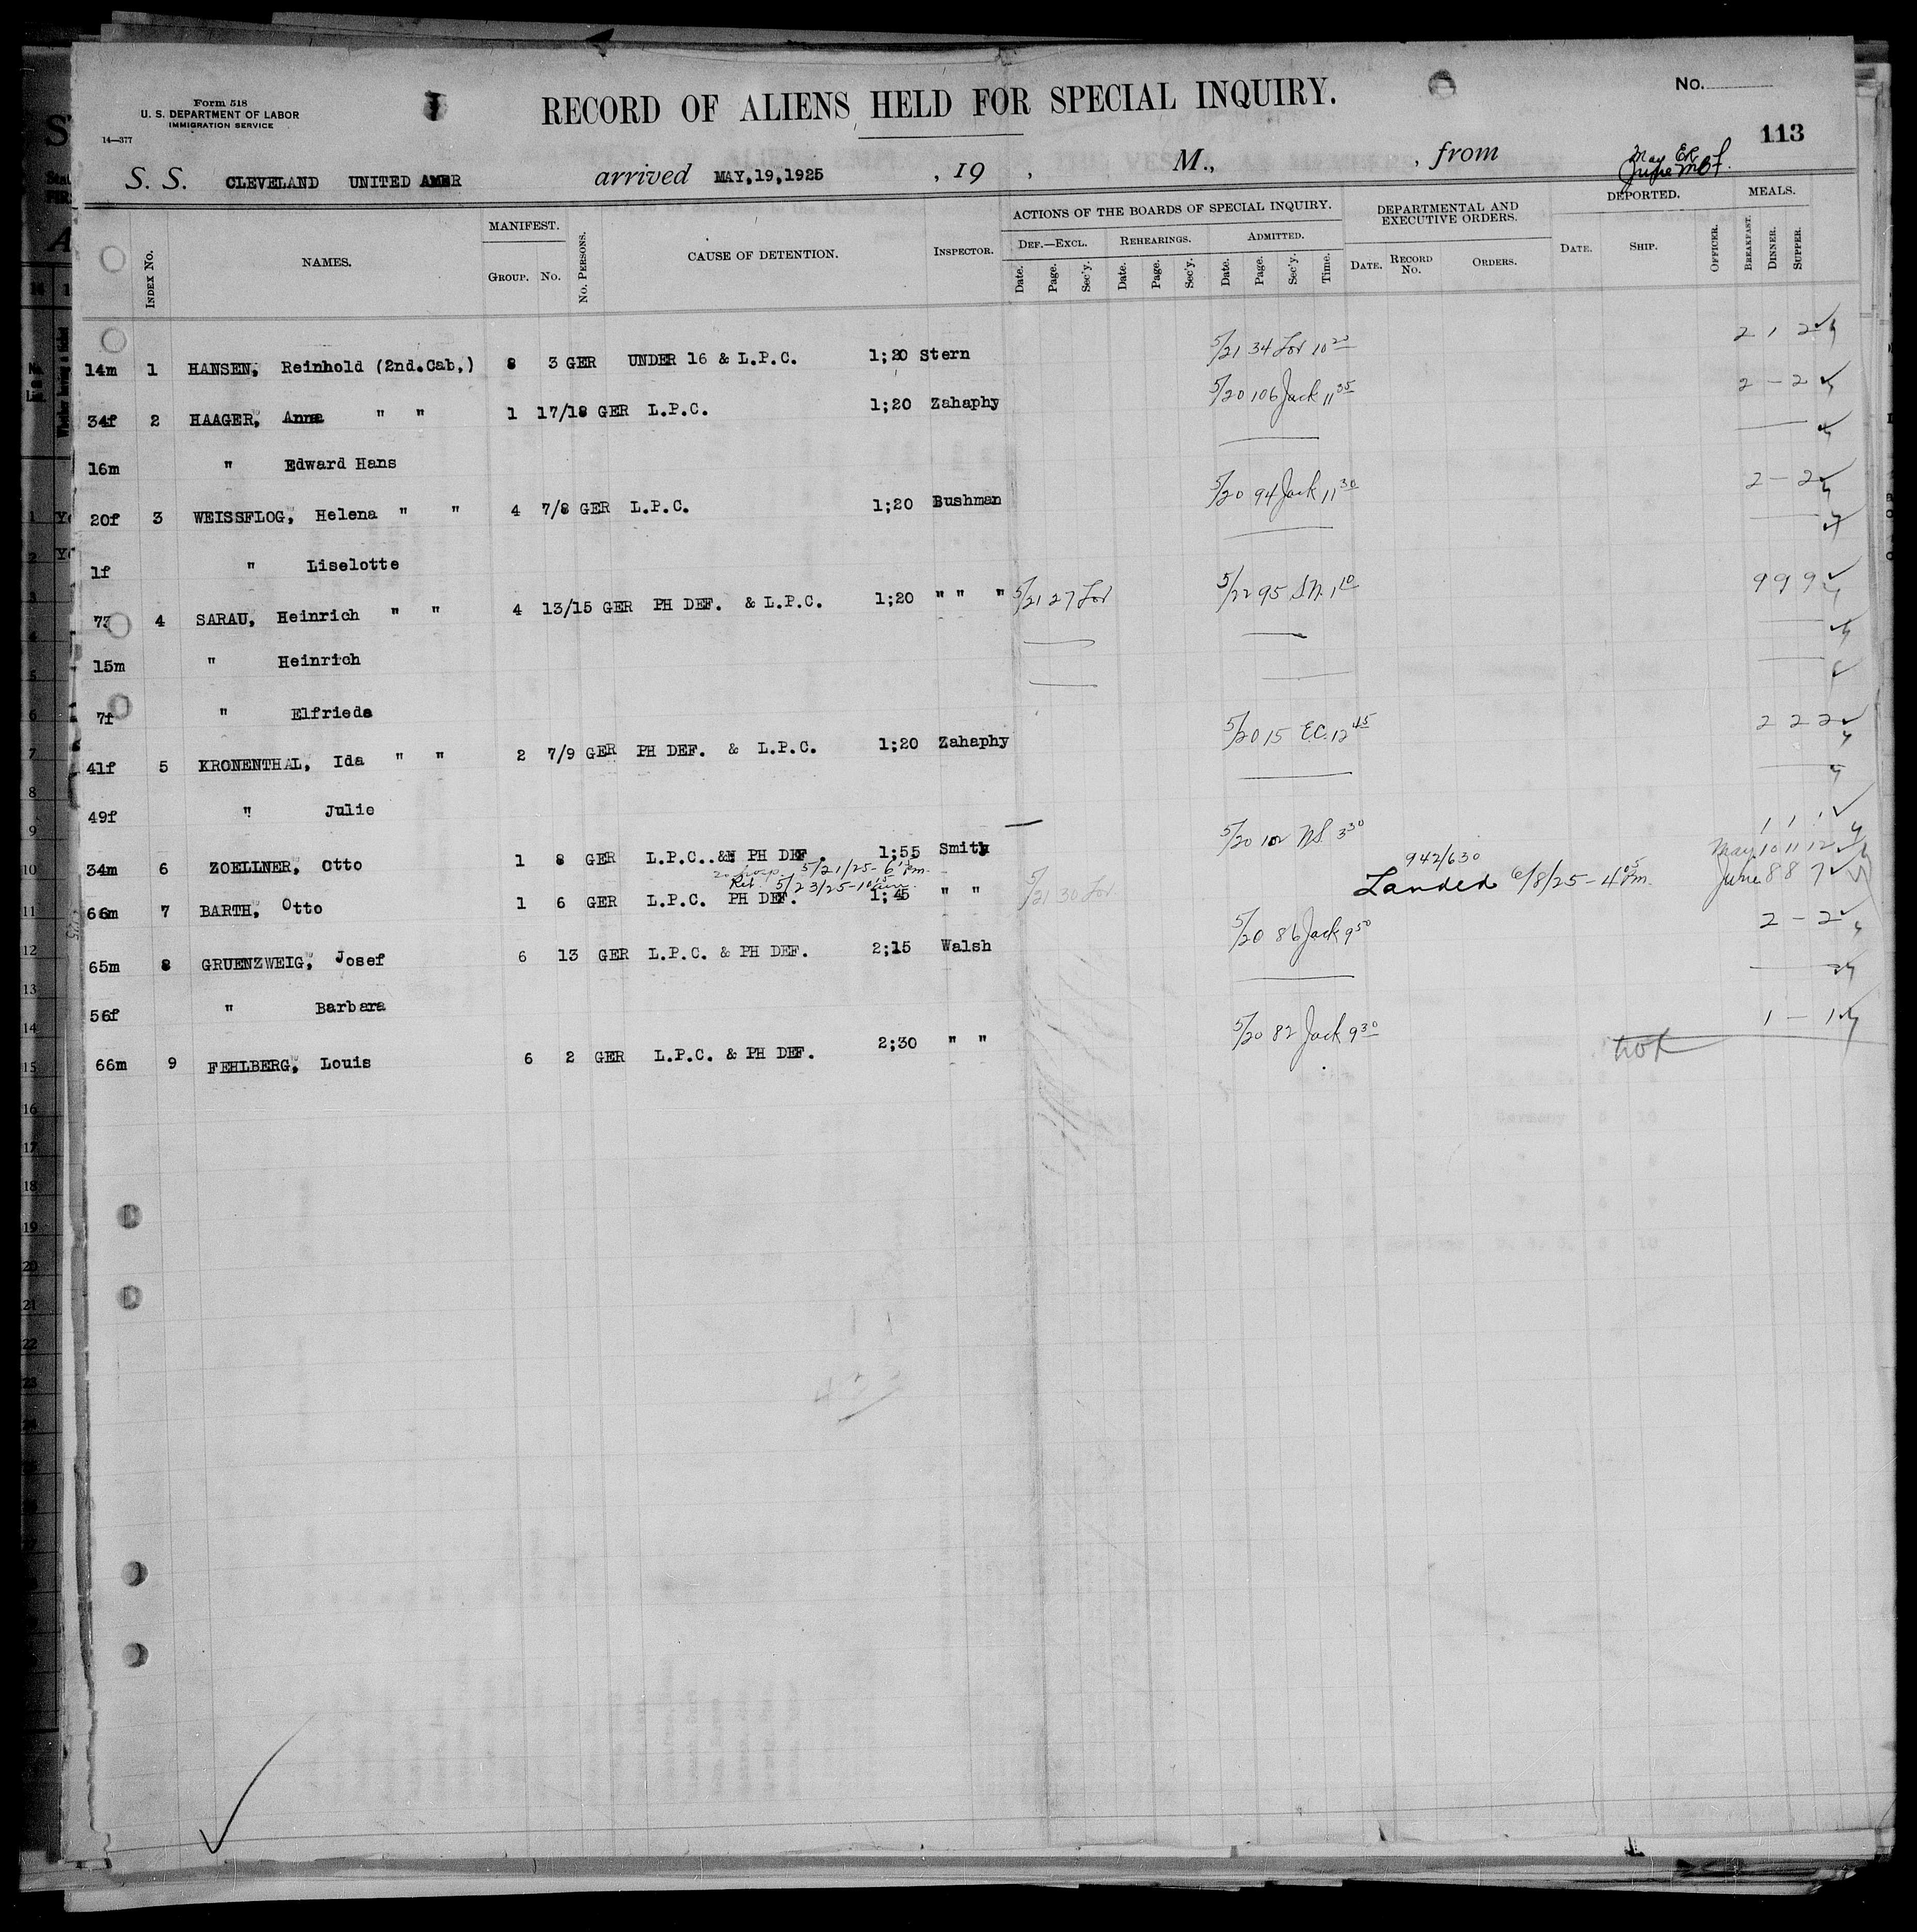 Form 518
U. S. DEPARTMENT OF LABOR
IMMIGRATION SERVICE
14—377
RECORD OF ALIENS HELD FOR SPECIAL INQUIRY.
No.
113
S. S. CLEVELAND UNITED AMER arrived MAY,19,1925 , 19 , M., , from
MANIFEST. ACTIONS OF THE BOARDS OF SPECIAL INQUIRY. DEPARTMENTAL AND EXECUTIVE ORDERS. DEPORTED. MEALS.
INDEX NO. NAMES. GROUP. NO. NO. PERSONS. CAUSE OF DETENTION. INSPECTOR. DEF.—EXCL. REHEARINGS. ADMITTED.
Date. Page. Sec'y. Date. Page. Sec'y. Date. Page. Sec'y. Time. DATE. RECORD NO. ORDERS. DATE. SHIP. OFFICER. BREAKFAST. DINNER. SUPPER.
14m 1 HANSEN, Reinhold (2nd.Cab,) 8 3 GER UNDER 16 & L.P.C. 1;20 Stern 5/21 34 Lor 10 20 2 1 2
34f 2 HAAGER, Anna " " 1 17/18 GER L.P.C. 1;20 Zahaphy 5/20 106 Jack 11 35 2 – 2
16m " Edward Hans
20f 3 WEISSFLOG, Helena " " 4 7/8 GER L.P.C. 1;20 Bushman 5/20 94 Jack 11 30 2 – 2
1f " Liselotte
4 SARAU, Heinrich " " 4 13/15 GER PH DEF. & L.P.C. 1;20 " " " 5/21 27 Lor 5/22 95 1 10 9 9 9
15m " Heinrich
7f " Elfriede
41f 5 KRONENTHAL, Ida " " 2 7/9 GER PH DEF. & L.P.C. 1;20 Zahaphy 5/20 15 EC. 12 45 2 2 2
49f " Julie
34m 6 ZOELLNER, Otto 1 8 GER L.P.C. & PH DEF. 1;55 Smith 5/20 102 NS. 3 30 1 1 1
to hosp. 5/21/25 – 6 pm. 942/630 May 10 11 12
Ret. 5/23/25 – 10
66m 7 BARTH, Otto 1 6 GER L.P.C. PH DEF. 1;45 " " 5/21 30 Lor Landed 6/8/25 – 4 05 Pm. June 8 8 7
65m 8 GRUENZWEIG, Josef 6 13 GER L.P.C. & PH DEF. 2;15 Walsh 5/20 86 Jack 9 50 2 – 2
56f " Barbara
66m 9 FEHLBERG, Louis 6 2 GER L.P.C. & PH DEF. 2;30 " " 5/20 82 Jack 9 30 1 – 1